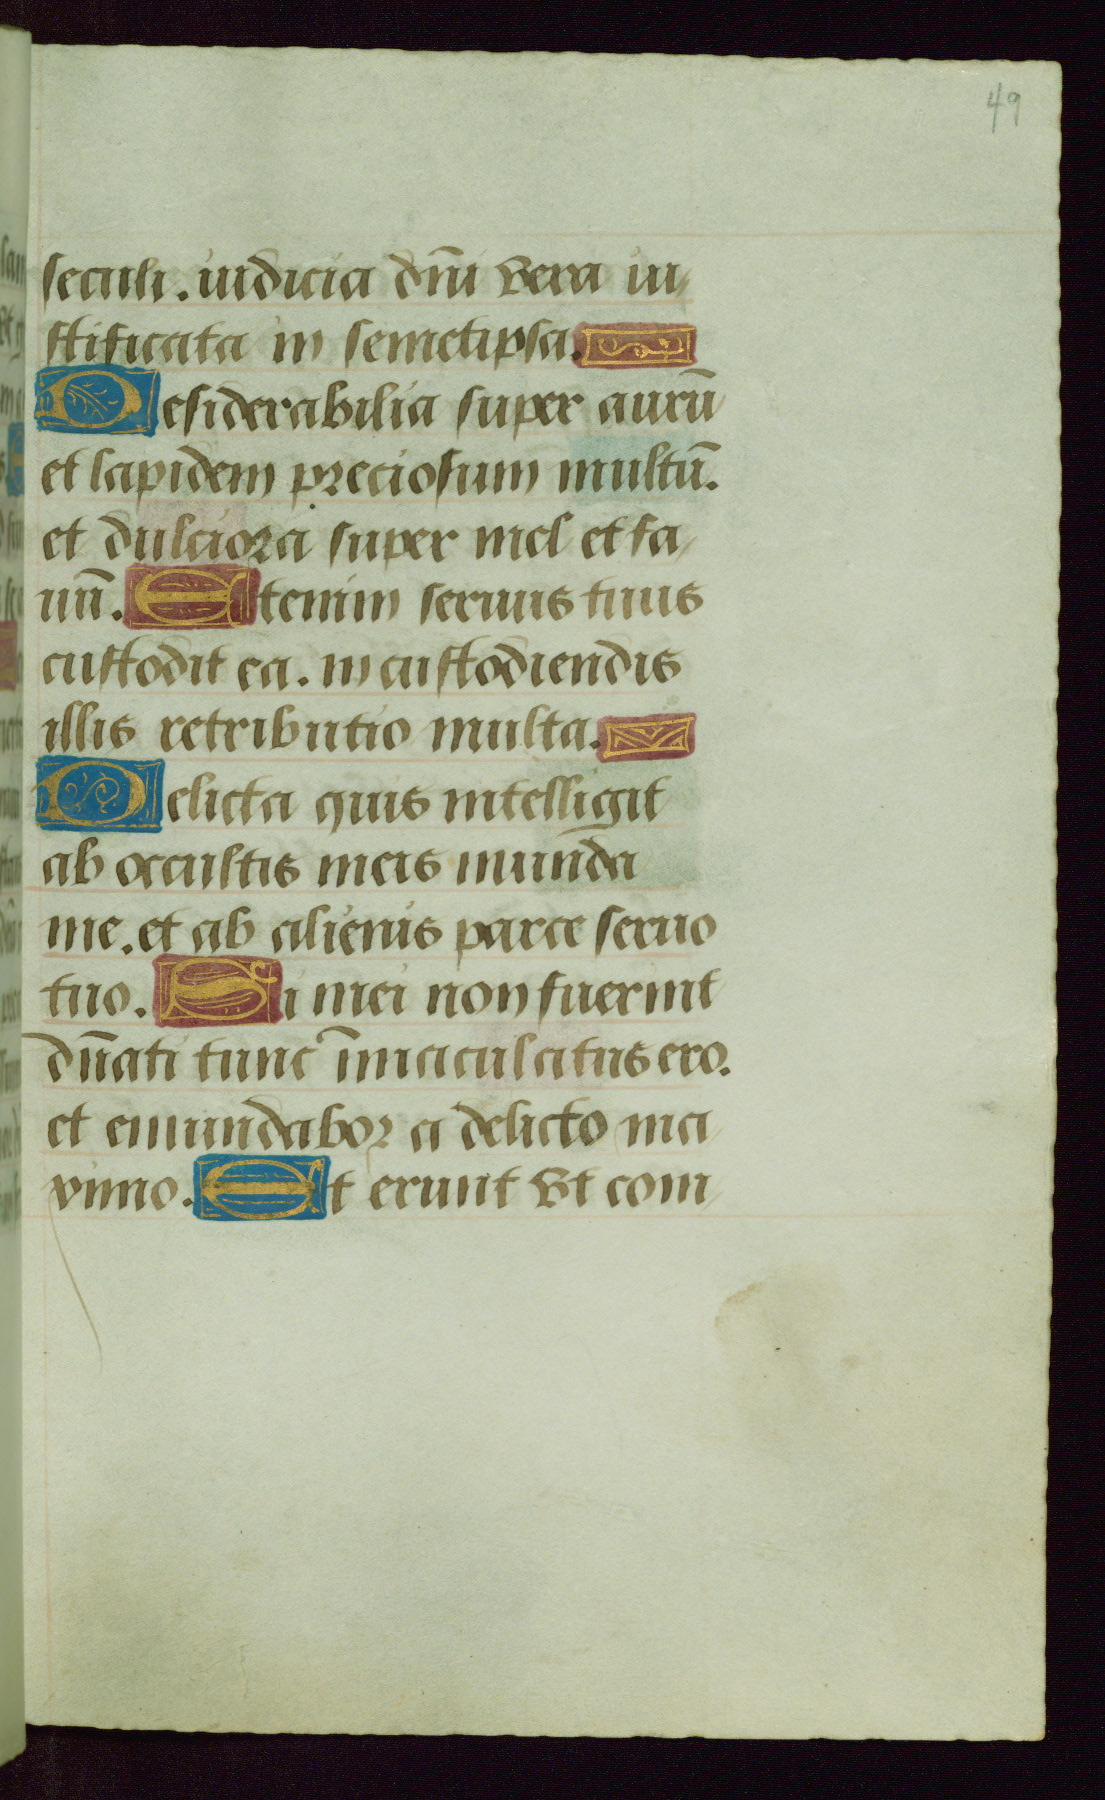 49
seculi. iudicia dñi vera iu-
stificata in semetipsa.
Desiderabilia super aurū
et lapidem preciosum multū.
et dulciora super mel et fa-
uū. Etenim seruus tuus
custodit ea. in custodiendis
illis retributio multa.
Delicta quis intelligit
ab occultis meis munda
me. et ab alienis parce seruo
tuo. Si mei non fuerint
dñati tunc īmaculatus ero.
et emundabor a delicto ma-
ximo. Et erunt vt com-